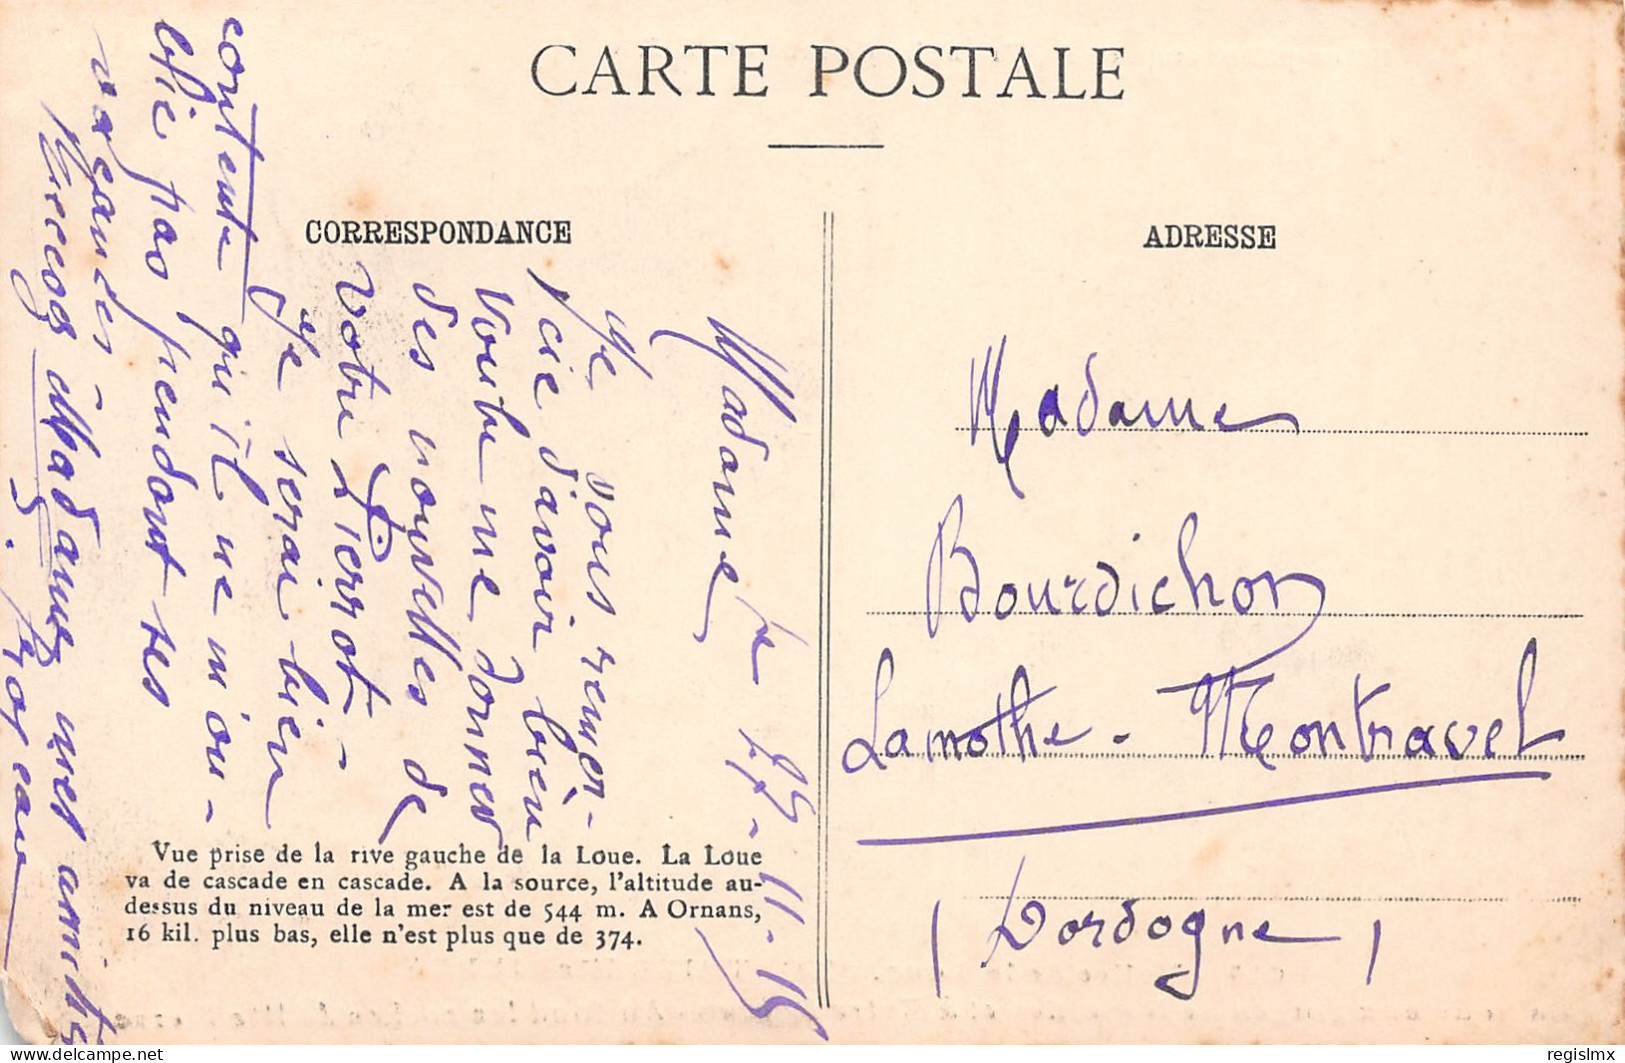 CARTE POSTALE
CORRESPONDANCE
ADRESSE
le 25-11-15
Madame
Je vous remer-
cie d'avoir bien
voulu me donner
des nouvelles de
votre Pierrot-
Je serai bien
contente qu'il ne m'ou-
blie pas pendant ses
vacances
Recevez Madame mes amitiés
Vue prise de la rive gauche de la Loue. La Loue
va de cascade en cascade. A la source, l'altitude au-
dessus du niveau de la mer est de 544 m. A Ornans,
16 kil. plus bas, elle n'est plus que de 374.
Madame
Bourdichon
Lamothe-Montravel
(Dordogne)
delcampe.net
regislmx